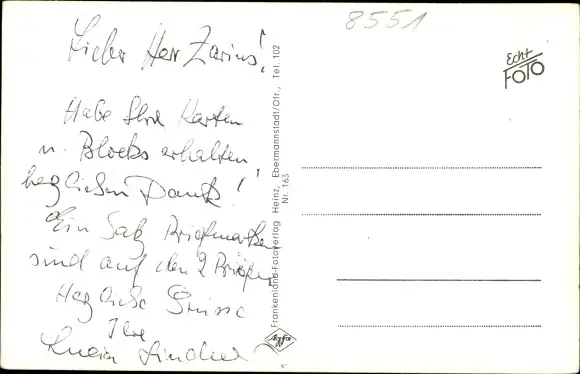 8551
Lieber Herr Zarius!
Habe Ihre Karten
u. Blocks erhalten,
herzlichen Dank!
Ein Satz Briefmarken
sind auf den 2 Briefen
Herzliche Grüsse
Ihre
Frankenland-Fotoverlag Heinz, Ebermannstadt/Ofr., Tel. 102
Nr. 163
Echt
FOTO
Agfa